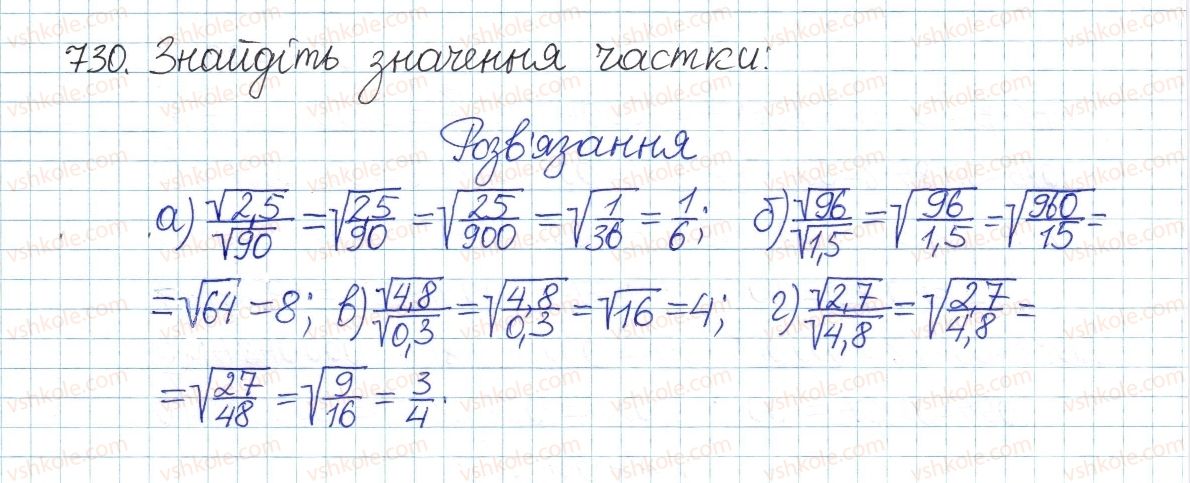 730. Знайдіть значення частки:
Розв'язання
а) √2,5/√90 = √(2,5/90) = √(25/900) = √(1/36) = 1/6; б) √96/√1,5 = √(96/1,5) = √(960/15) =
= √64 = 8; в) √4,8/√0,3 = √(4,8/0,3) = √16 = 4; г) √2,7/√4,8 = √(2,7/4,8) =
= √(27/48) = √(9/16) = 3/4.